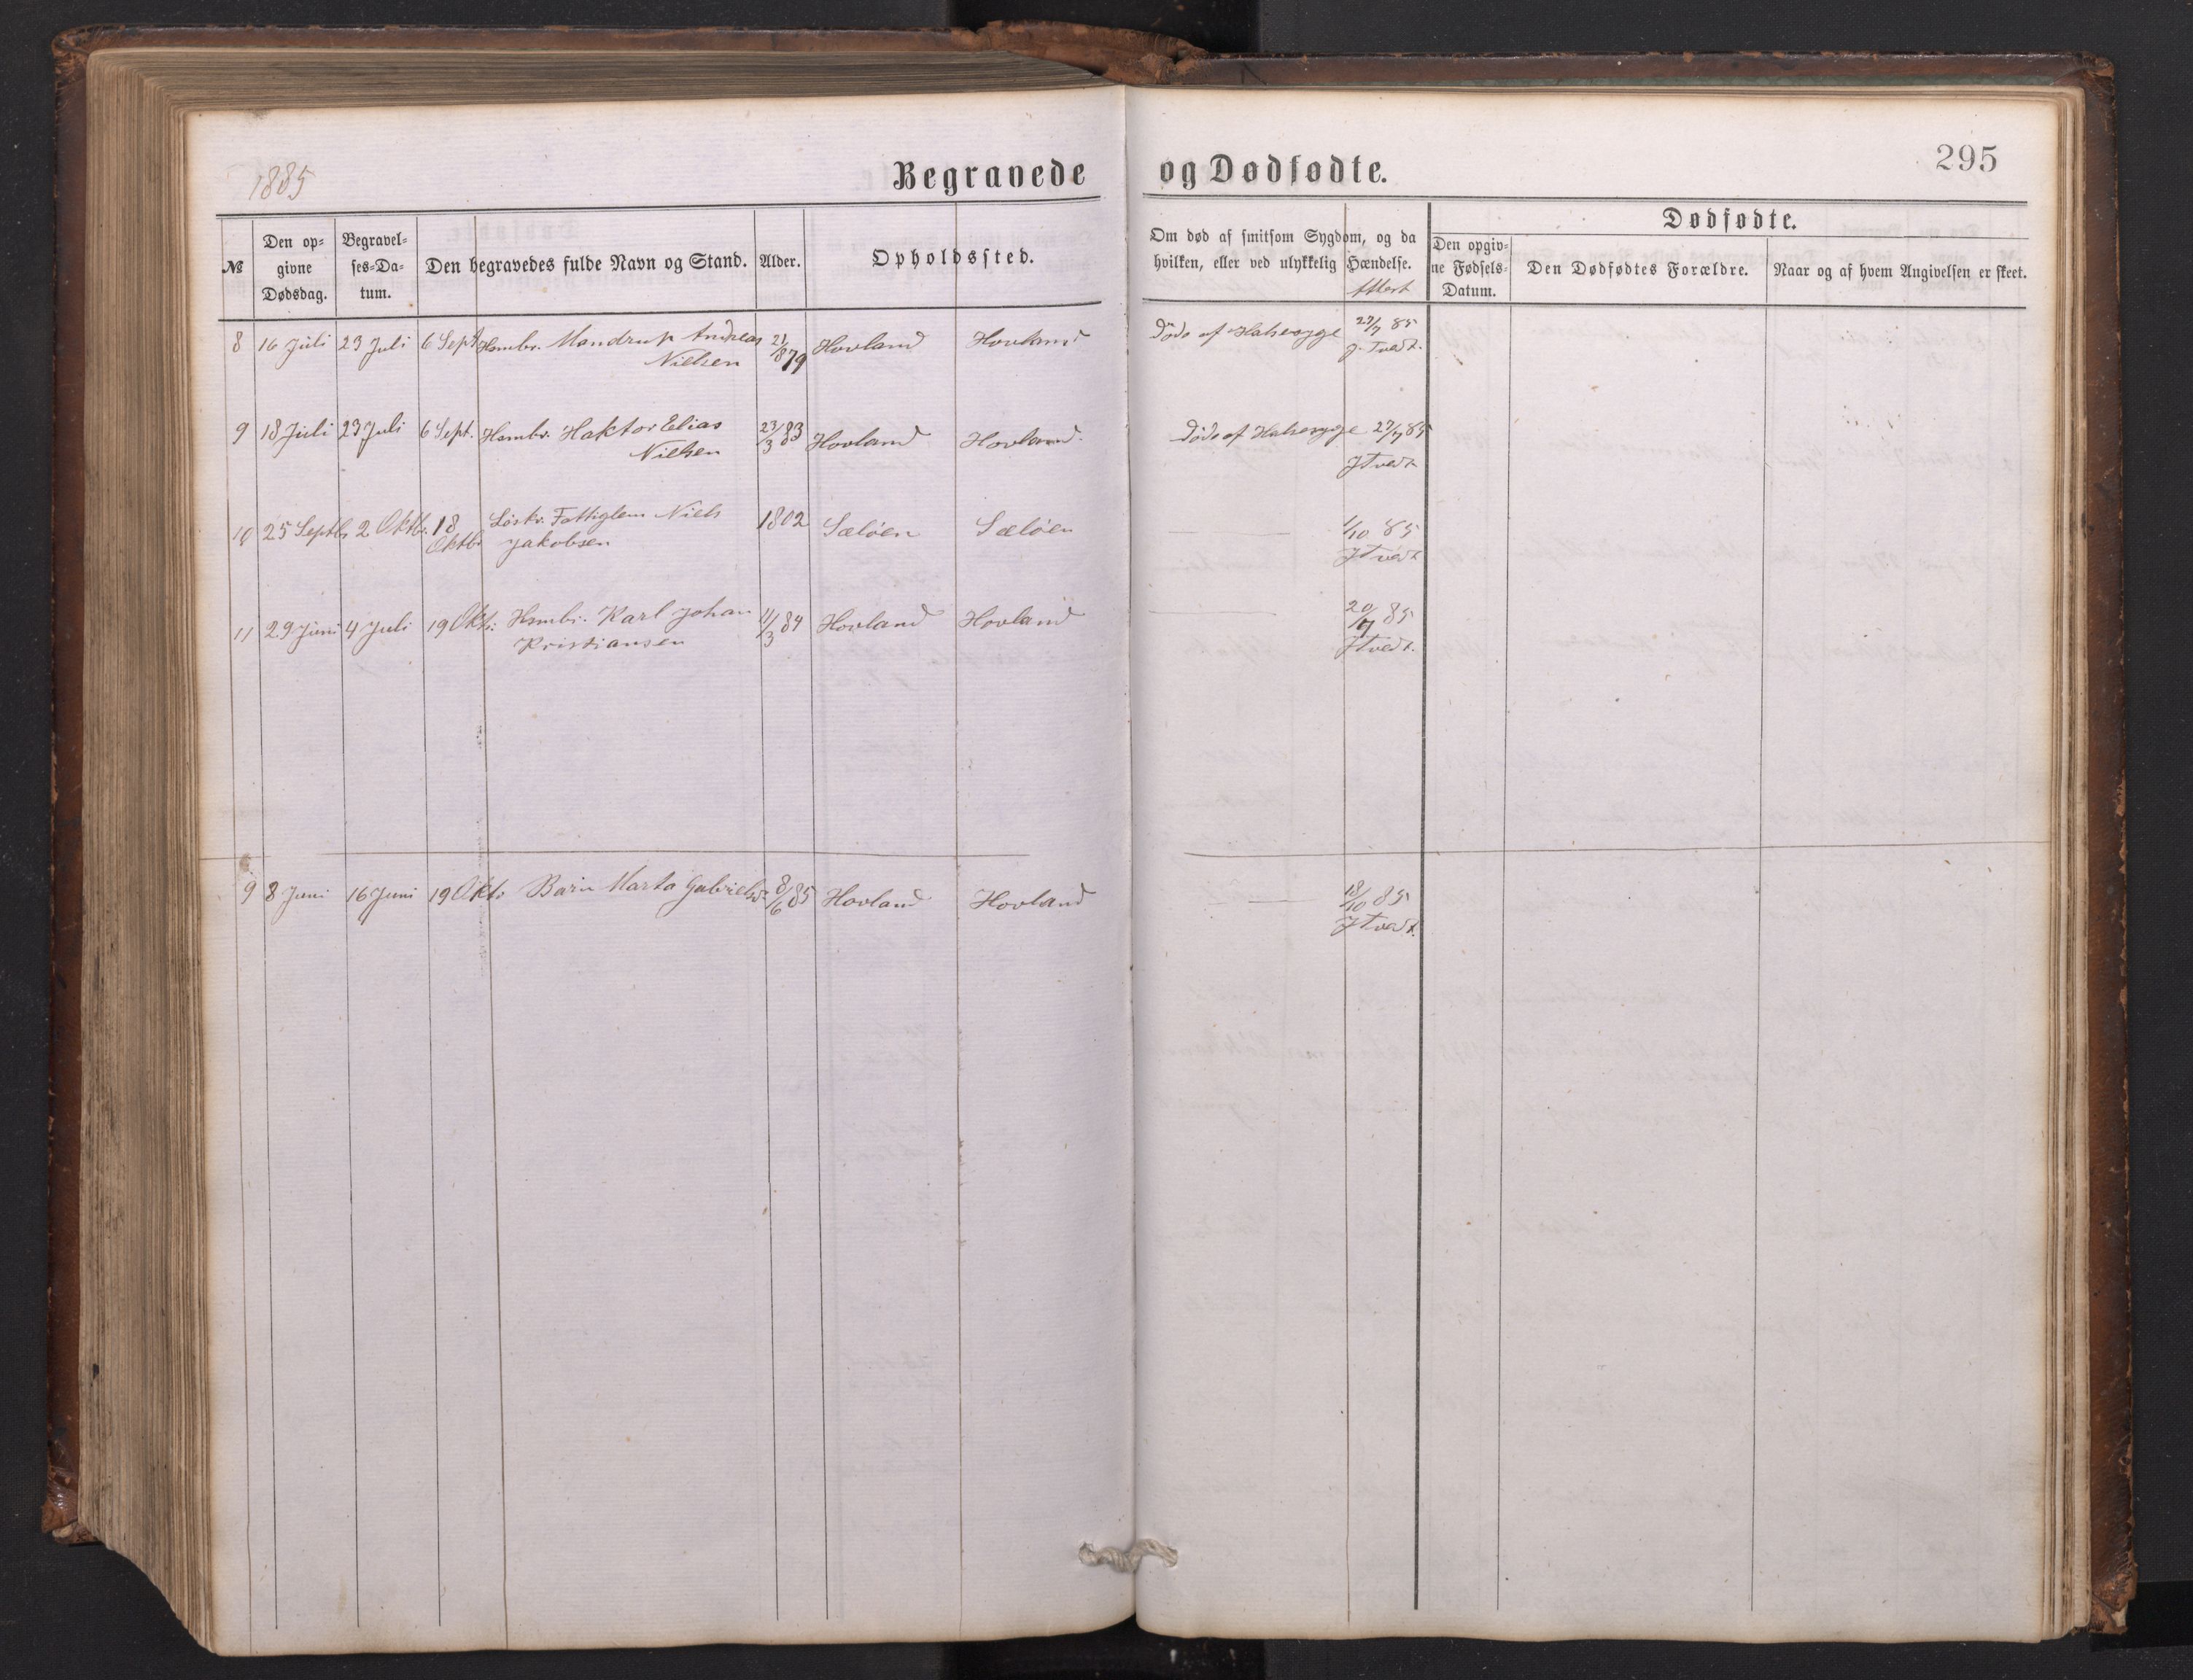 1885
Begravede og Dødfødte.
295
№
Den op-
givne
Dødsdag.
Begravel-
ses-Da-
tum.
Den begravedes fulde Navn og Stand.
Alder.
Opholdssted.
Om død af smitsom Sygdom, og da
hvilken, eller ved ulykkelig Hændelse.
Attest
Dødfødte.
Den opgiv-
ne Fødsels-
Datum.
Den Dødfødtes Forældre.
Naar og af hvem Angivelsen er skeet.
8 16 Juli 23 Juli 6 Sept Hsmbr. Mandrup Andreas 21/8 79 Hovland Hovland Døde af Halssyge 27/7 85
Nielsen J. Tvedt.
9 18 Juli 23 Juli 6 Sept. Hsmbr. Haktor Elias 23/3 83 Hovland Hovland. Døde af Halssyge 27/7 85
Nielsen JTvedt
10 25 Septb 2 Oktb. 18 Løskr. Fattiglem Niels 1802 Sæløen Sæløen — 1/10 85
Oktb. Jakobsen JTvedt
11 29 Juni 4 Juli 19 Okt: Hsmbr. Karl Johan 11/3 84 Hovland Hovland — 20/7 85
Kristiansen JTvedt.
9 8 Juni 16 Juni 19 Oktb Barn Marta Gabrielsd. 8/6 85 Hovland Hovland — 18/10 85
JTvedt.